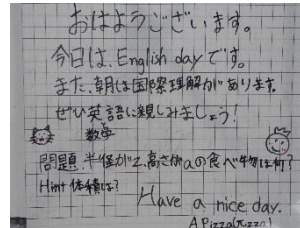 おはようございます。
今日は、English dayです。
また、朝は国際理解があります。
ぜひ英語に親しみましょう!
数学
問題.半径がz、高さがaの食べ物は何?
Hint 体積は?
Have a nice day.
A.Pizza(πzza)